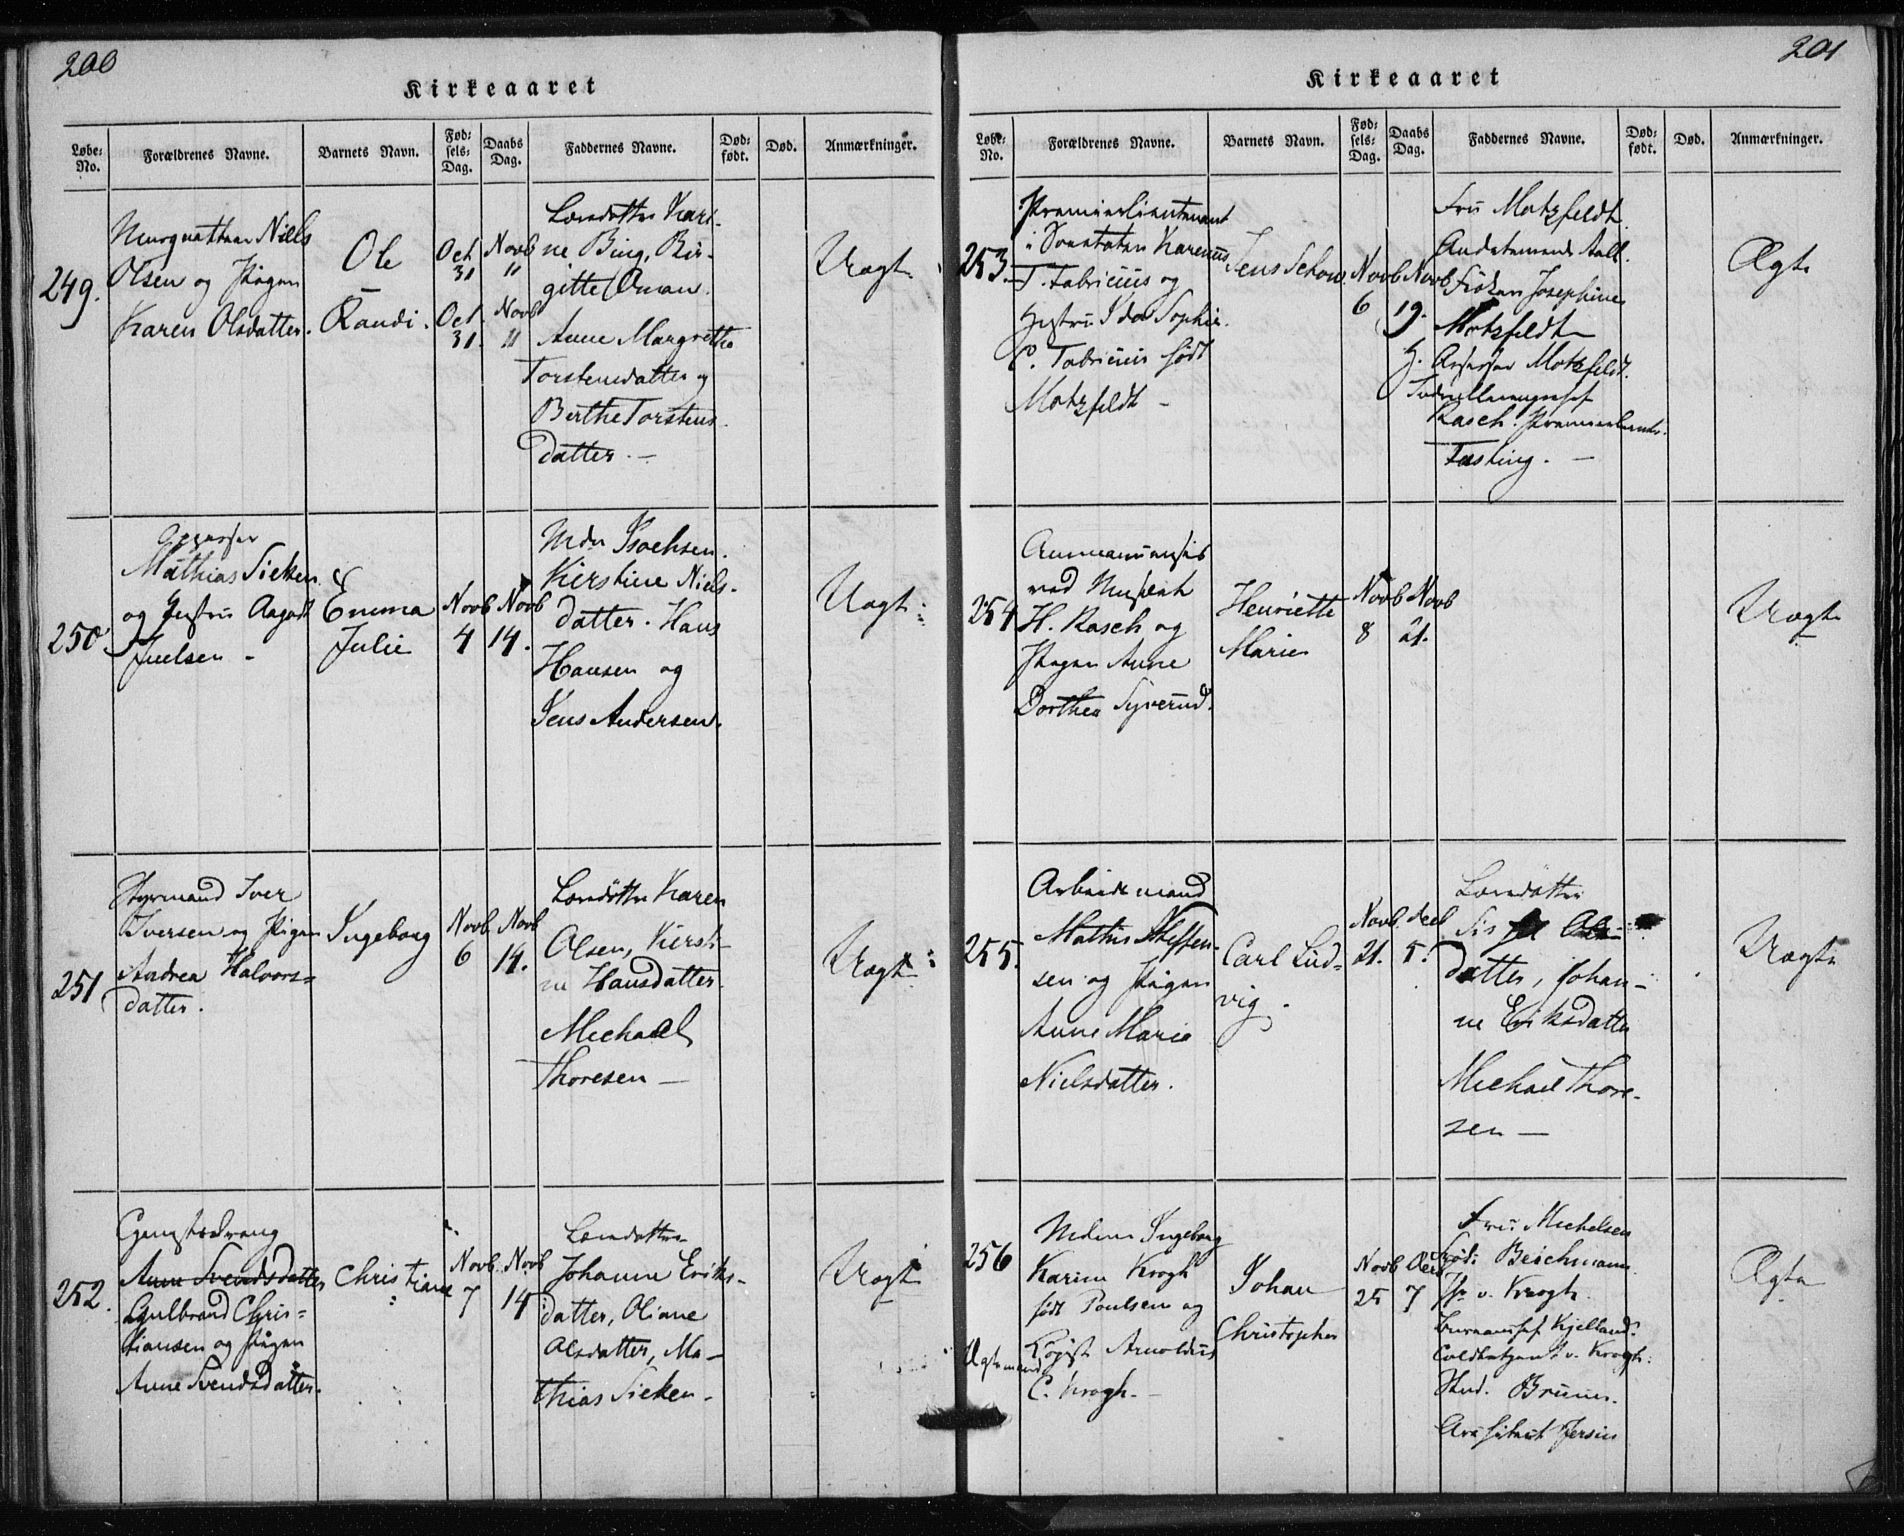 200
Kirkeaaret
Løbe-
No.
Forældrenes Navne.
Barnets Navn.
Fød-
sels-
Dag.
Daabs
Dag.
Faddernes Navne.
Død-
født.
Død.
Anmærkninger.
249.
Niels
Olsen og Pigen
Karen Olsdatter.
Ole
–
Randi.
Oct
31
Oct
31.
Novb
11
Novb
11
Kari-
ne Bing, Bir-
gitte Oman.
Anne Margrethe
Torstensdatter og
Berthe Torstens-
datter. –
Uægte
250
Mathias Sieken
og Jfr
Juelsen –
Emma
Julie
Novb
4
Novb
14.
Mdm Isachsen.
Kierstine Niels-
datter. Hans
Hansen og
Jens Andersen.
Uægte
251
Styrmand Iver
Iversen og Pigen
Andrea Halvors-
datter.
Ingeborg
Novb
6
Novb
14.
Karen
Olsen, Kirsti-
ne Hansdatter.
Michael
Thoresen –
Uægte
252.
Anne Svendsdatter
Gulbrand Chris-
tiansen og Pigen
Anne Svendsdatter.
Christiane
Novb
7
Novb
14
Johanne Eriks-
datter, Oliane
Olsdatter, Ma-
thias Sieken –
Uægte
201
Kirkeaaret
Løbe-
No.
Forældrenes Navne.
Barnets Navn.
Fød-
sels-
Dag.
Daabs
Dag.
Faddernes Navne.
Død-
født.
Død.
Anmærkninger.
253.
Premierlieutenant
i Karenus
T. Fabricius og
Hustru Ida Sophie
C. Fabricius født
Motzfeldt –
Jens Schow
Novb
6
Novb
19.
Fru Motzfeldt.
Aall.
Frøken Josephine
Motzfeldt
H. Assessor Motzfeldt.
Rasch. Premierlieutn.
Fasting. –
Ægte
254
Amanuensis
ved Museet
H. Rasch og
Pigen Anne
Dorthea Syverud.
Henriette
Marie
Novb
8
Novb
21.
Uægte
255.
Arbeidsmand
Mathis Steffen-
sen og Pigen
Anne Marie
Nielsdatter.
Carl Lud-
vig.
Novb
21.
Decb
5.
Ols-
datter, Johan-
ne Eriksdatter
Michael Thore-
sen –
Uægte
256
Madam Ingeborg
Karine Krogh
født Poulsen og
Ægtemand
Kopist Arnoldus
C. Krogh. –
Johan
Christopher
Novb
25
Decb
7
Fru Michelsen
født Beichmann.
Hr v. Krogh.
Bureauchef Kjelland.
v. Krogh.
Stud. Bruun.
Arkitect Jersin
Ægte